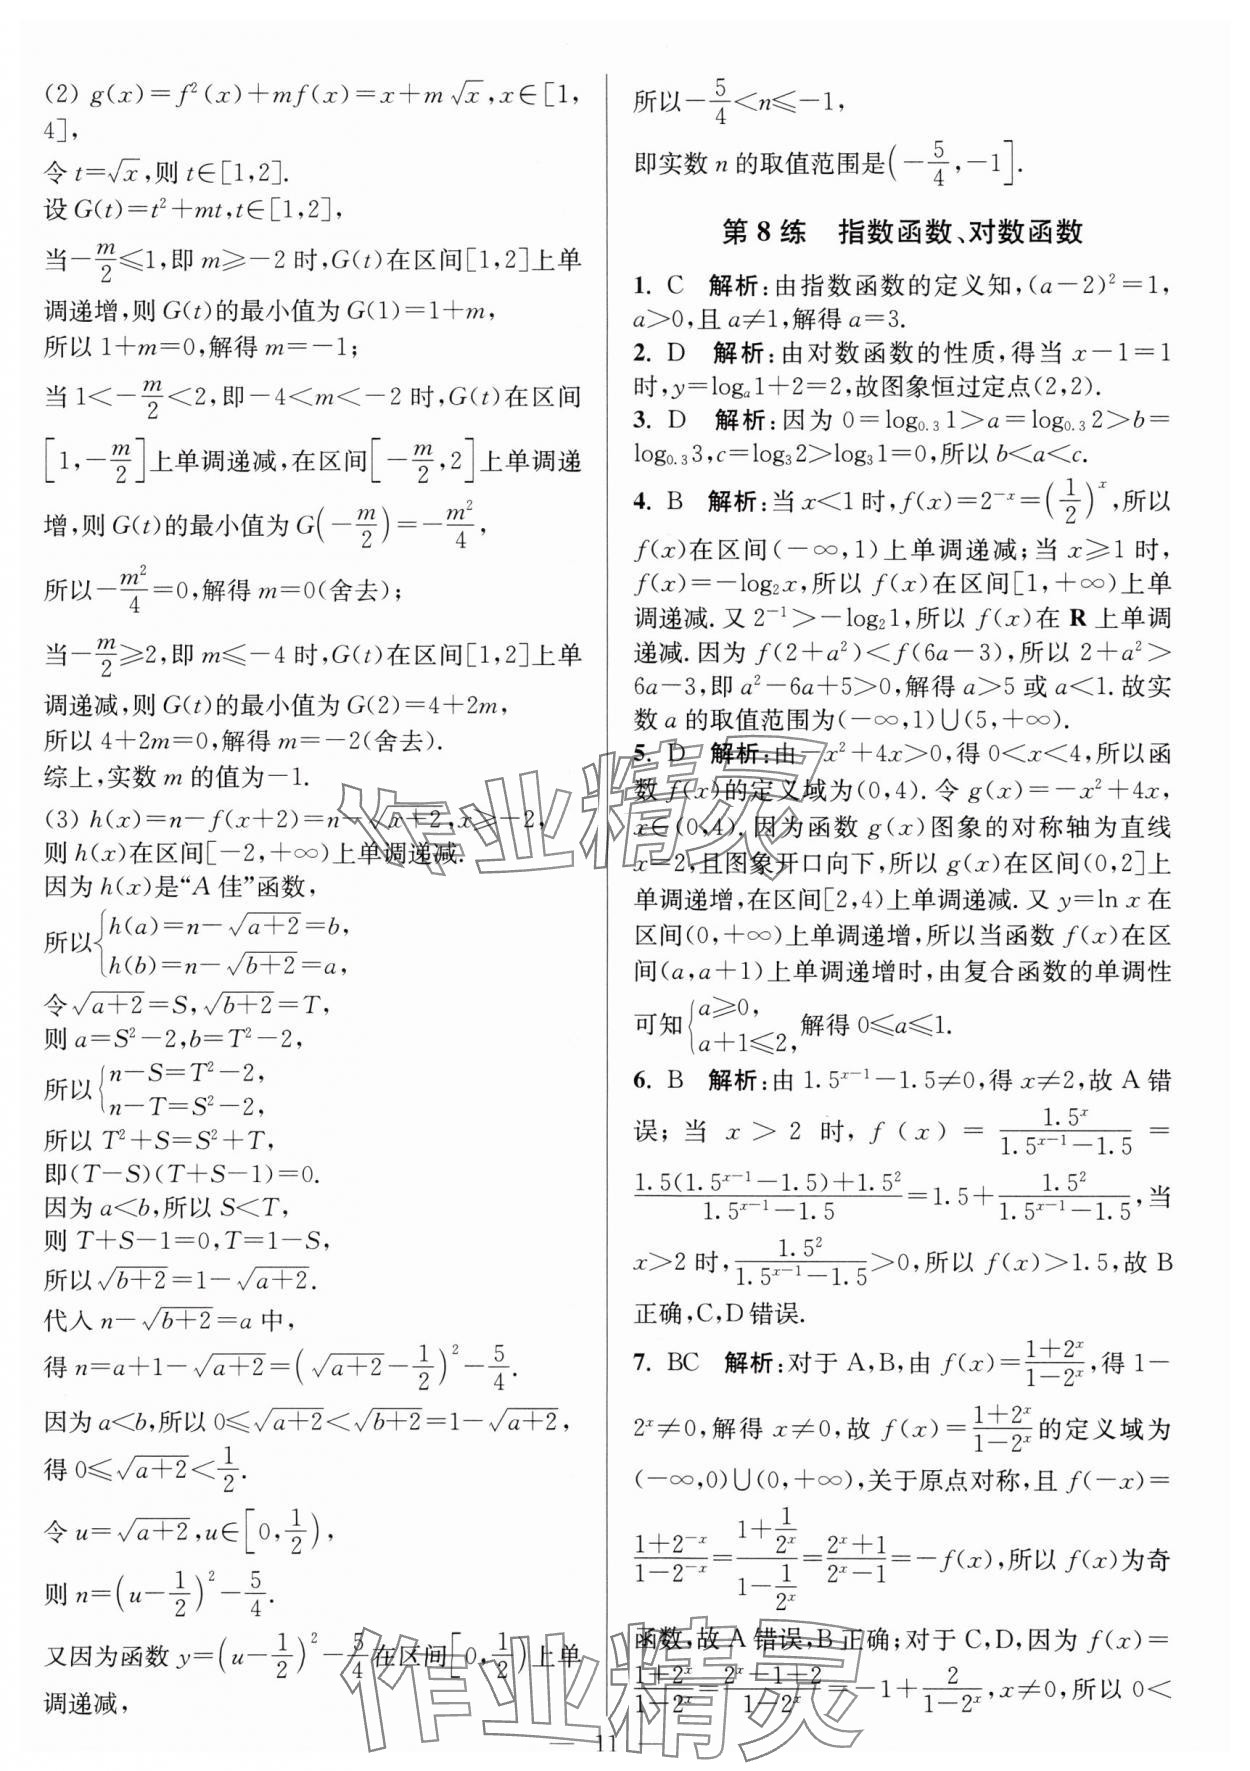 (2) g(x)=f²(x)+mf(x)=x+m√x,x∈[1,
4],
令 t=√x,则 t∈[1,2].
设 G(t)=t²+mt,t∈[1,2],
当-m/2≤1,即 m≥-2 时,G(t)在区间[1,2]上单
调递增,则 G(t)的最小值为 G(1)=1+m,
所以 1+m=0,解得 m=-1;
当 1<-m/2<2,即-4<m<-2 时,G(t)在区间
[1,-m/2]上单调递减,在区间[-m/2,2]上单调递
增,则 G(t)的最小值为 G(-m/2)=-m²/4,
所以-m²/4=0,解得 m=0(舍去);
当-m/2≥2,即 m≤-4 时,G(t)在区间[1,2]上单
调递减,则 G(t)的最小值为 G(2)=4+2m,
所以 4+2m=0,解得 m=-2(舍去).
综上,实数 m 的值为-1.
(3) h(x)=n-f(x+2)=n-√(x+2),x≥-2,
则 h(x)在区间[-2,+∞)上单调递减.
因为 h(x)是“A 佳”函数,
所以{h(a)=n-√(a+2)=b,
h(b)=n-√(b+2)=a,
令√(a+2)=S,√(b+2)=T,
则 a=S²-2,b=T²-2,
所以{n-S=T²-2,
n-T=S²-2,
所以 T²+S=S²+T,
即(T-S)(T+S-1)=0.
因为 a<b,所以 S<T,
则 T+S-1=0,T=1-S,
所以√(b+2)=1-√(a+2).
代入 n-√(b+2)=a 中,
得 n=a+1-√(a+2)=(√(a+2)-1/2)²-5/4.
因为 a<b,所以 0≤√(a+2)<√(b+2)=1-√(a+2),
得 0≤√(a+2)<1/2.
令 u=√(a+2),u∈[0,1/2),
则 n=(u-1/2)²-5/4.
又因为函数 y=(u-1/2)²-5/4在区间[0,1/2)上单
调递减,
所以-5/4<n≤-1,
即实数 n 的取值范围是(-5/4,-1].
第 8 练 指数函数、对数函数
1. C 解析:由指数函数的定义知,(a-2)²=1,
a>0,且 a≠1,解得 a=3.
2. D 解析:由对数函数的性质,得当 x-1=1
时,y=logₐ1+2=2,故图象恒过定点(2,2).
3. D 解析:因为 0=log₀.₃1>a=log₀.₃2>b=
log₀.₃3,c=log₃2>log₃1=0,所以 b<a<c.
4. B 解析:当 x<1 时,f(x)=2⁻ˣ=(1/2)ˣ,所以
f(x)在区间(-∞,1)上单调递减;当 x≥1 时,
f(x)=-log₂x,所以 f(x)在区间[1,+∞)上单
调递减.又 2⁻¹>-log₂1,所以 f(x)在 R 上单调
递减.因为 f(2+a²)<f(6a-3),所以 2+a²>
6a-3,即 a²-6a+5>0,解得 a>5 或 a<1.故实
数 a 的取值范围为(-∞,1)∪(5,+∞).
5. D 解析:由-x²+4x>0,得 0<x<4,所以函
数 f(x)的定义域为(0,4).令 g(x)=-x²+4x,
x∈(0,4),因为函数 g(x)图象的对称轴为直线
x=2,且图象开口向下,所以 g(x)在区间(0,2]上
单调递增,在区间[2,4)上单调递减.又 y=ln x 在
区间(0,+∞)上单调递增,所以当函数 f(x)在区
间(a,a+1)上单调递增时,由复合函数的单调性
可知{a≥0,
a+1≤2, 解得 0≤a≤1.
6. B 解析:由 1.5ˣ⁻¹-1.5≠0,得 x≠2,故 A 错
误;当 x>2 时,f(x)=1.5ˣ/(1.5ˣ⁻¹-1.5)=
(1.5(1.5ˣ⁻¹-1.5)+1.5²)/(1.5ˣ⁻¹-1.5)=1.5+1.5²/(1.5ˣ⁻¹-1.5),当
x>2 时,1.5²/(1.5ˣ⁻¹-1.5)>0,所以 f(x)>1.5,故 B
正确,C,D 错误.
7. BC 解析:对于 A,B,由 f(x)=(1+2ˣ)/(1-2ˣ),得 1-
2ˣ≠0,解得 x≠0,故 f(x)=(1+2ˣ)/(1-2ˣ)的定义域为
(-∞,0)∪(0,+∞),关于原点对称,且 f(-x)=
(1+2⁻ˣ)/(1-2⁻ˣ)=(1+1/2ˣ)/(1-1/2ˣ)=(2ˣ+1)/(2ˣ-1)=-f(x),所以 f(x)为奇
函数,故 A 错误,B 正确;对于 C,D,因为 f(x)=
(1+2ˣ)/(1-2ˣ)=(2ˣ-1+2)/(1-2ˣ)=-1+2/(1-2ˣ),x≠0,所以 0<
— 11 —
作业精灵
作业精灵